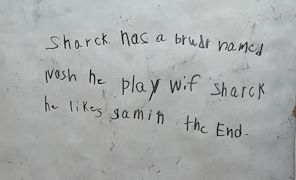 Sharck has a brudr named
Nosh he play wif sharck
he likes samin the End.